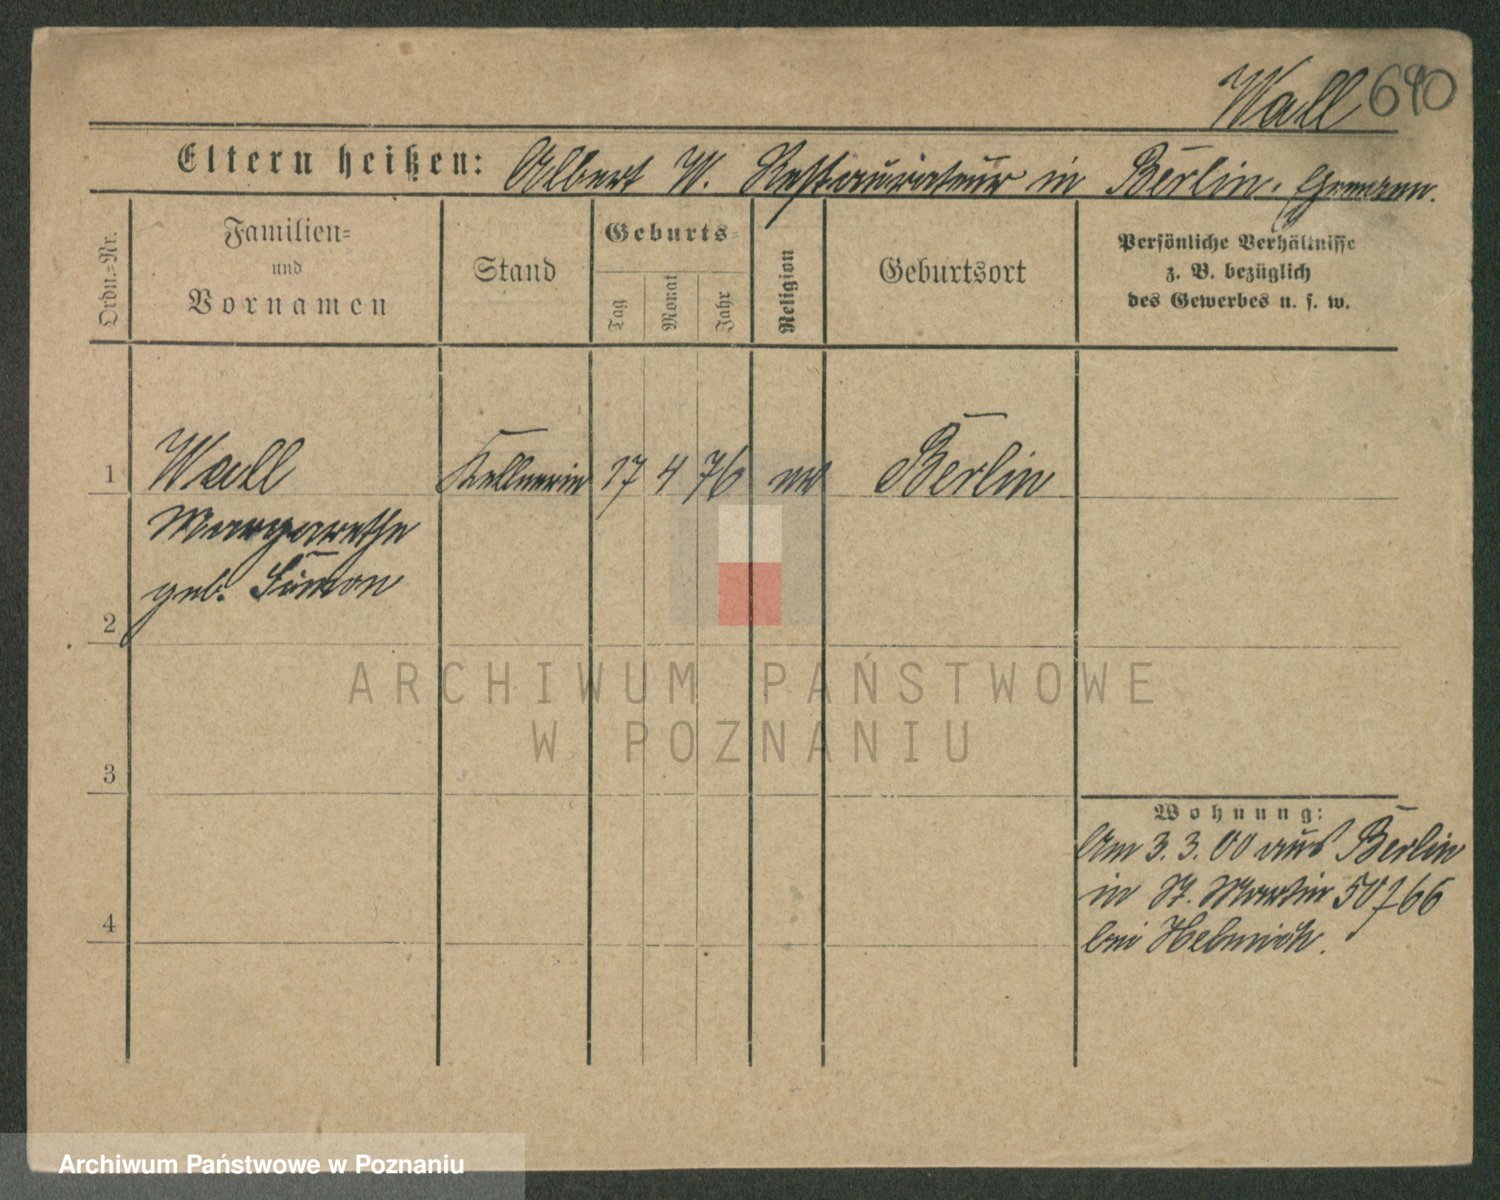 Wall 690
Eltern heißen: Albert W. Restaurateur in Berlin.
Ordn.=Nr.
Familien=
und
Vornamen
Stand
Geburts=
Tag
Monat
Jahr
Religion
Geburtsort
Persönliche Verhältnisse
z. B. bezüglich
des Gewerbes u. s. w.
1 Wall Kellnerin 17 4 76 ev Berlin
Margarethe
geb. Simon
2
3
4
Wohnung:
Am 3.3.00 aus Berlin
in St. Martin 50/66
bei Helmich.
ARCHIWUM PAŃSTWOWE
W POZNANIU
Archiwum Państwowe w Poznaniu